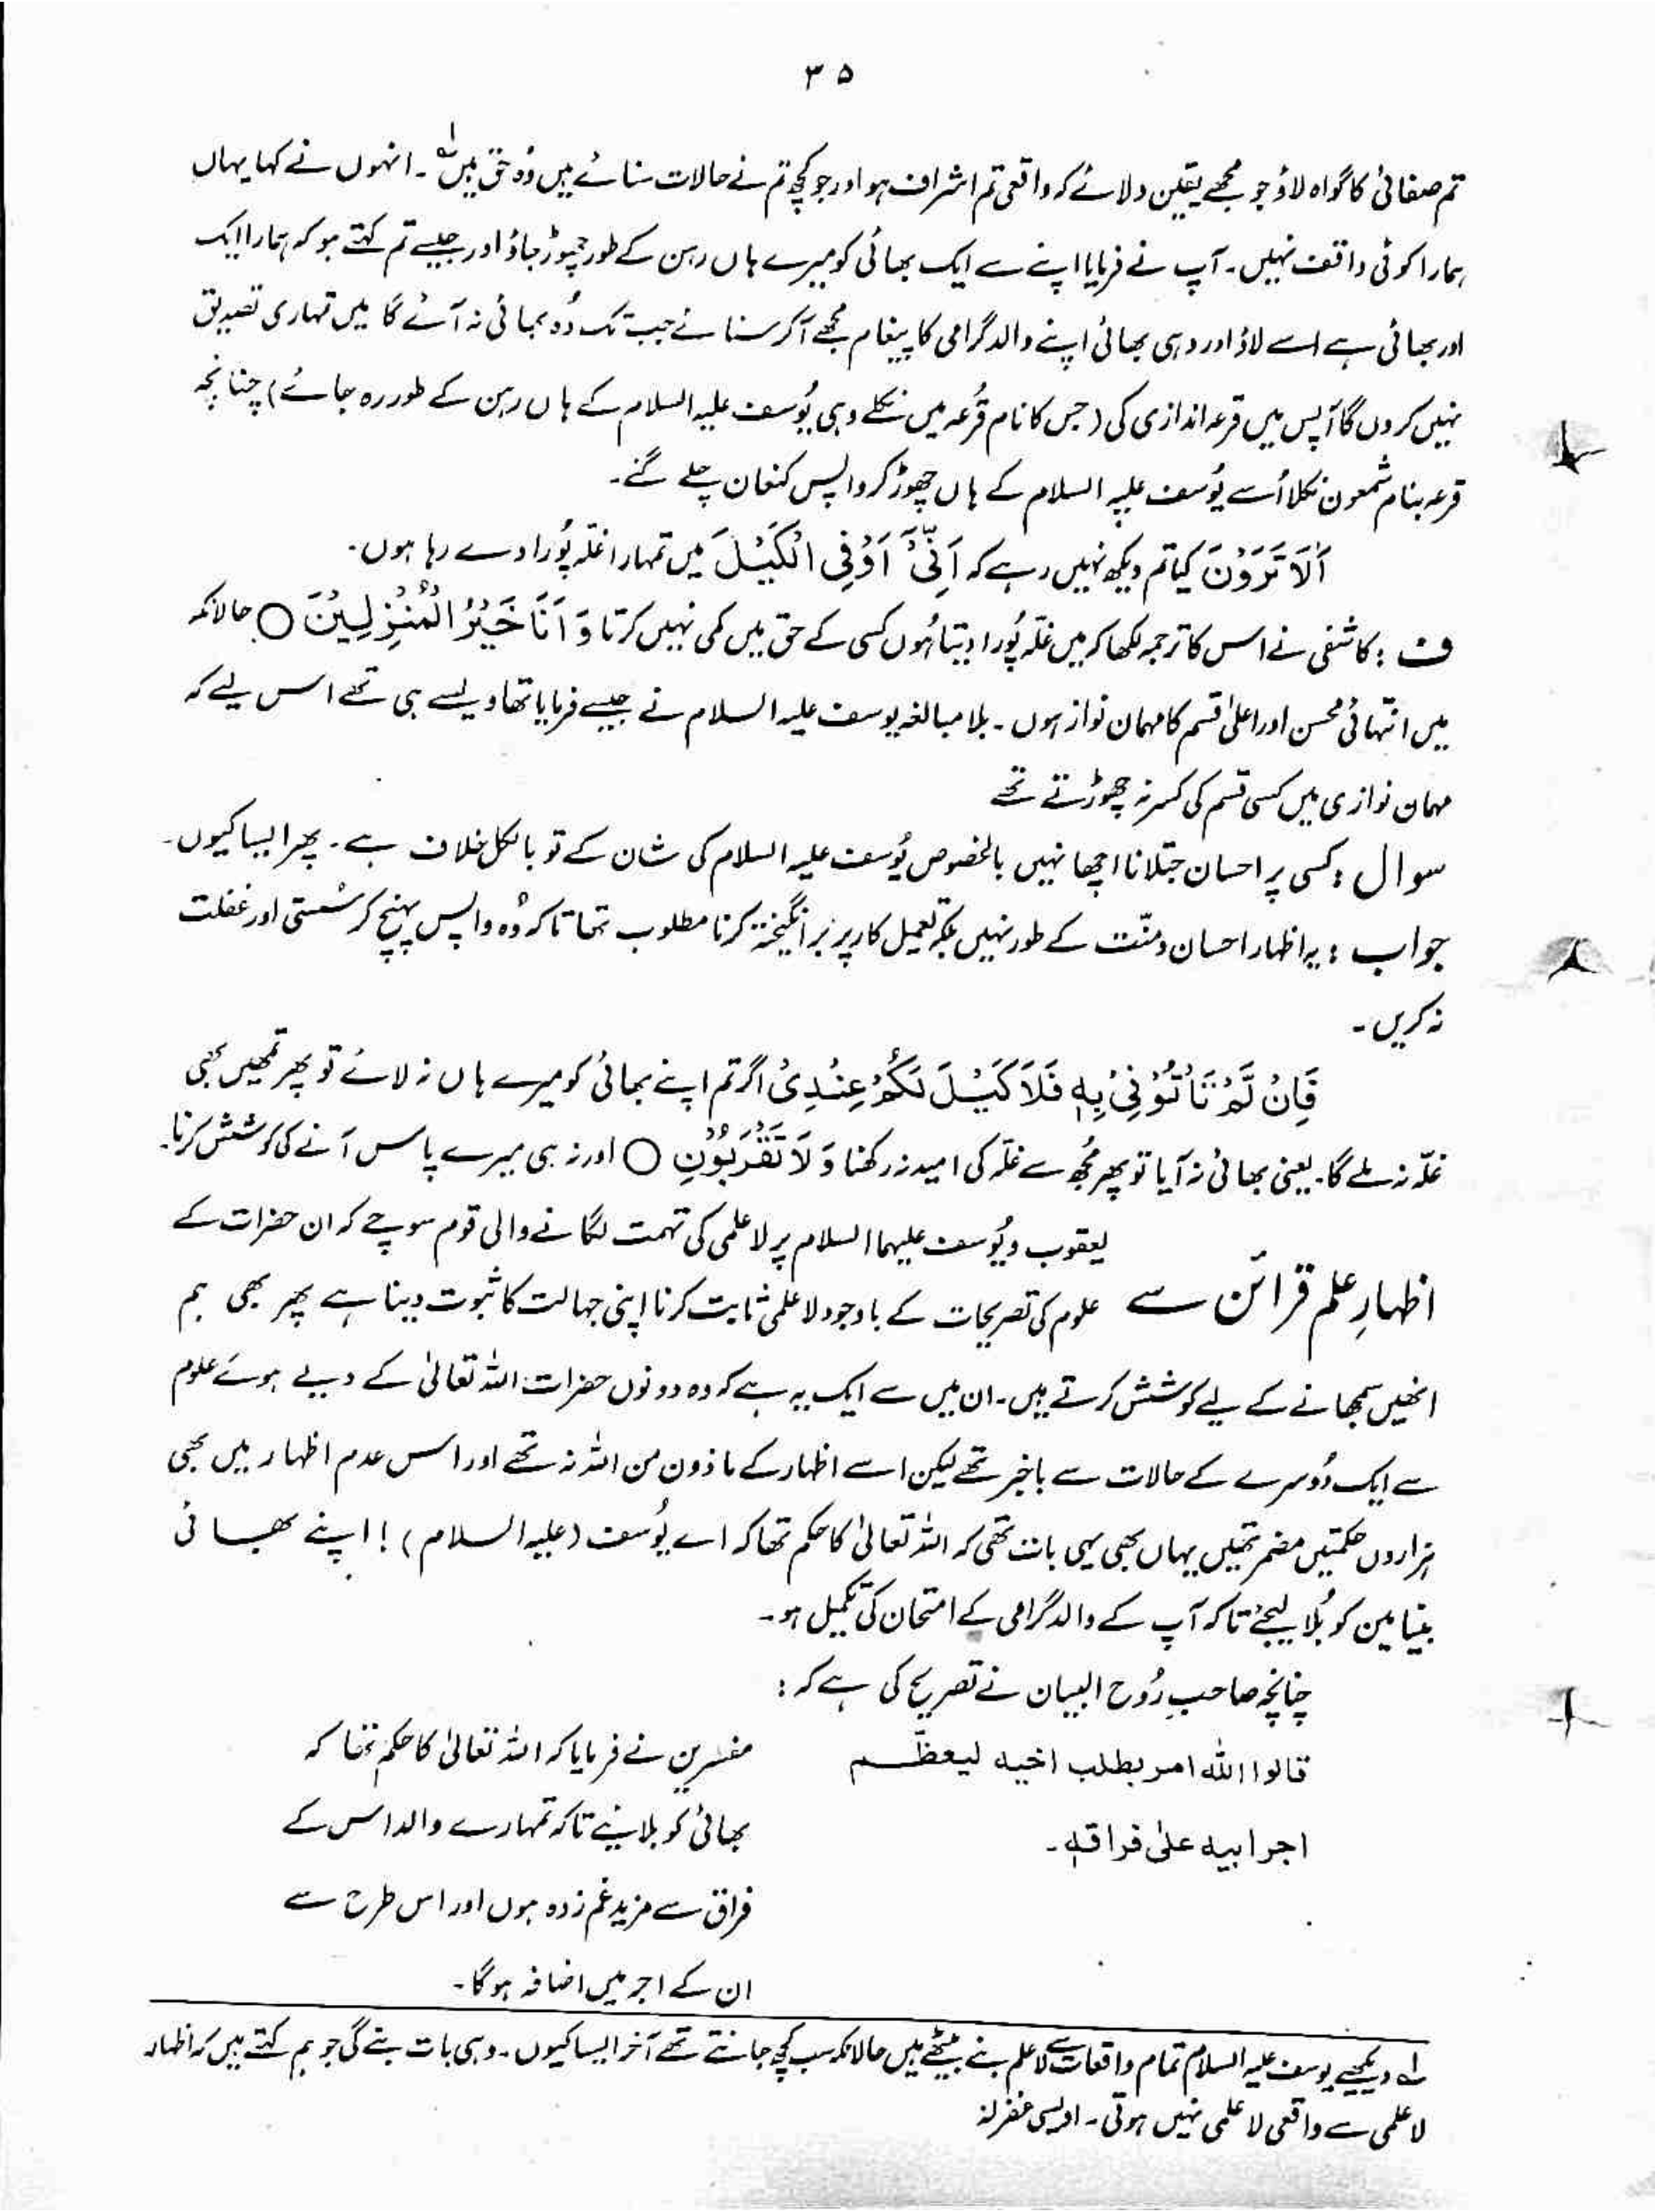 ۳۵
تم صفائی کا گواہ لاؤ جو مجھے یقین دلائے کہ واقعی تم اشراف ہو اور جو کچھ تم نے حالات سنائے ہیں وُہ حق ہیں۱؎۔ انہوں نے کہا یہاں
ہمارا کوئی واقف نہیں۔ آپ نے فرمایا اپنے سے ایک بھائی کو میرے ہاں رہن کے طور چھوڑ جاؤ اور جیسے تم کہتے ہو کہ ہمارا ایک
اور بھائی ہے اسے لاؤ اور وہی بھائی اپنے والد گرامی کا پیغام مجھے آ کر سنائے جب تک وُہ بھائی نہ آئے گا میں تمہاری تصدیق
نہیں کروں گا آپس میں قرعہ اندازی کی (جس کا نام قُرعہ میں نکلے وہی یُوسف علیہ السلام کے ہاں رہن کے طور رہ جائے) چنانچہ
قرعہ بنام شمعون نکلا اُسے یُوسف علیہ السلام کے ہاں چھوڑ کر واپس کنعان چلے گئے۔
اَلَا تَرَوْنَ کیا تم دیکھ نہیں رہے کہ اَنِّیْٓ اُوْفِی الْکَیْلَ میں تمہارا غلّہ پُورا دے رہا ہوں۔
ف : کاشفی نے اس کا ترجمہ لکھا کہ میں غلّہ پُورا دیتا ہُوں کسی کے حق میں کمی نہیں کرتا وَ اَنَا خَیْرُ الْمُنْزِلِیْنَ ○ حالانکہ
میں انتہائی محسن اور اعلیٰ قسم کا مہمان نواز ہوں۔ بلا مبالغہ یوسف علیہ السلام نے جیسے فرمایا تھا ویسے ہی تھے اس لیے کہ
مہمان نوازی میں کسی قسم کی کسر نہ چھوڑتے تھے
سوال : کسی پر احسان جتلانا اچھا نہیں بالخصوص یُوسف علیہ السلام کی شان کے تو بالکل خلاف ہے۔ پھر ایسا کیوں۔
جواب : یہ اظہار احسان و منّت کے طور نہیں بلکہ تعمیل کار پر برانگیختہ کرنا مطلوب تھا تاکہ وُہ واپس پہنچ کر سُستی اور غفلت
نہ کریں۔
فَاِنْ لَّمْ تَاْتُوْنِیْ بِہٖ فَلَا کَیْلَ لَکُمْ عِنْدِیْ اگر تم اپنے بھائی کو میرے ہاں نہ لائے تو پھر تمھیں بھی
غلّہ نہ ملے گا۔ یعنی بھائی نہ آیا تو پھر مُجھ سے غلّہ کی امید نہ رکھنا وَ لَا تَقْرَبُوْنِ ○ اور نہ ہی میرے پاس آنے کی کوشش کرنا۔
یعقوب و یُوسف علیہما السلام پر لاعلمی کی تہمت لگانے والی قوم سوچے کہ ان حضرات کے
اظہارِ علم قرائن سے علوم کی تصریحات کے باوجود لاعلمی ثابت کرنا اپنی جہالت کا ثبوت دینا ہے پھر بھی ہم
انھیں سمجھانے کے لیے کوشش کرتے ہیں۔ ان میں سے ایک یہ ہے کہ وہ دونوں حضرات اللہ تعالیٰ کے دیے ہوئے علوم
سے ایک دُوسرے کے حالات سے باخبر تھے لیکن اسے اظہار کے ماذون من اللہ نہ تھے اور اس عدم اظہار میں بھی
ہزاروں حکمتیں مضمر تھیں یہاں بھی یہی بات تھی کہ اللہ تعالیٰ کا حکم تھا کہ اے یُوسف (علیہ السلام) ! اپنے بھائی
بنیامین کو بُلا لیجئے تاکہ آپ کے والد گرامی کے امتحان کی تکمیل ہو۔
چنانچہ صاحب رُوح البیان نے تصریح کی ہے کہ :
قالوا اللہ امر بطلب اخیہ لیعظّم
اجر ابیہ علیٰ فراقہٖ۔
مفسرین نے فرمایا کہ اللہ تعالیٰ کا حکم تھا کہ
بھائی کو بلائیے تاکہ تمہارے والد اس کے
فراق سے مزید غم زدہ ہوں اور اس طرح سے
ان کے اجر میں اضافہ ہوگا۔
۱؎ دیکھیے یوسف علیہ السلام تمام واقعات سے لاعلم بنے بیٹھے ہیں حالانکہ سب کچھ جانتے تھے آخر ایسا کیوں۔ وہی بات بنے گی جو ہم کہتے ہیں کہ اظہار
لاعلمی سے واقعی لاعلمی نہیں ہوتی۔ اویسی غفرلہٗ